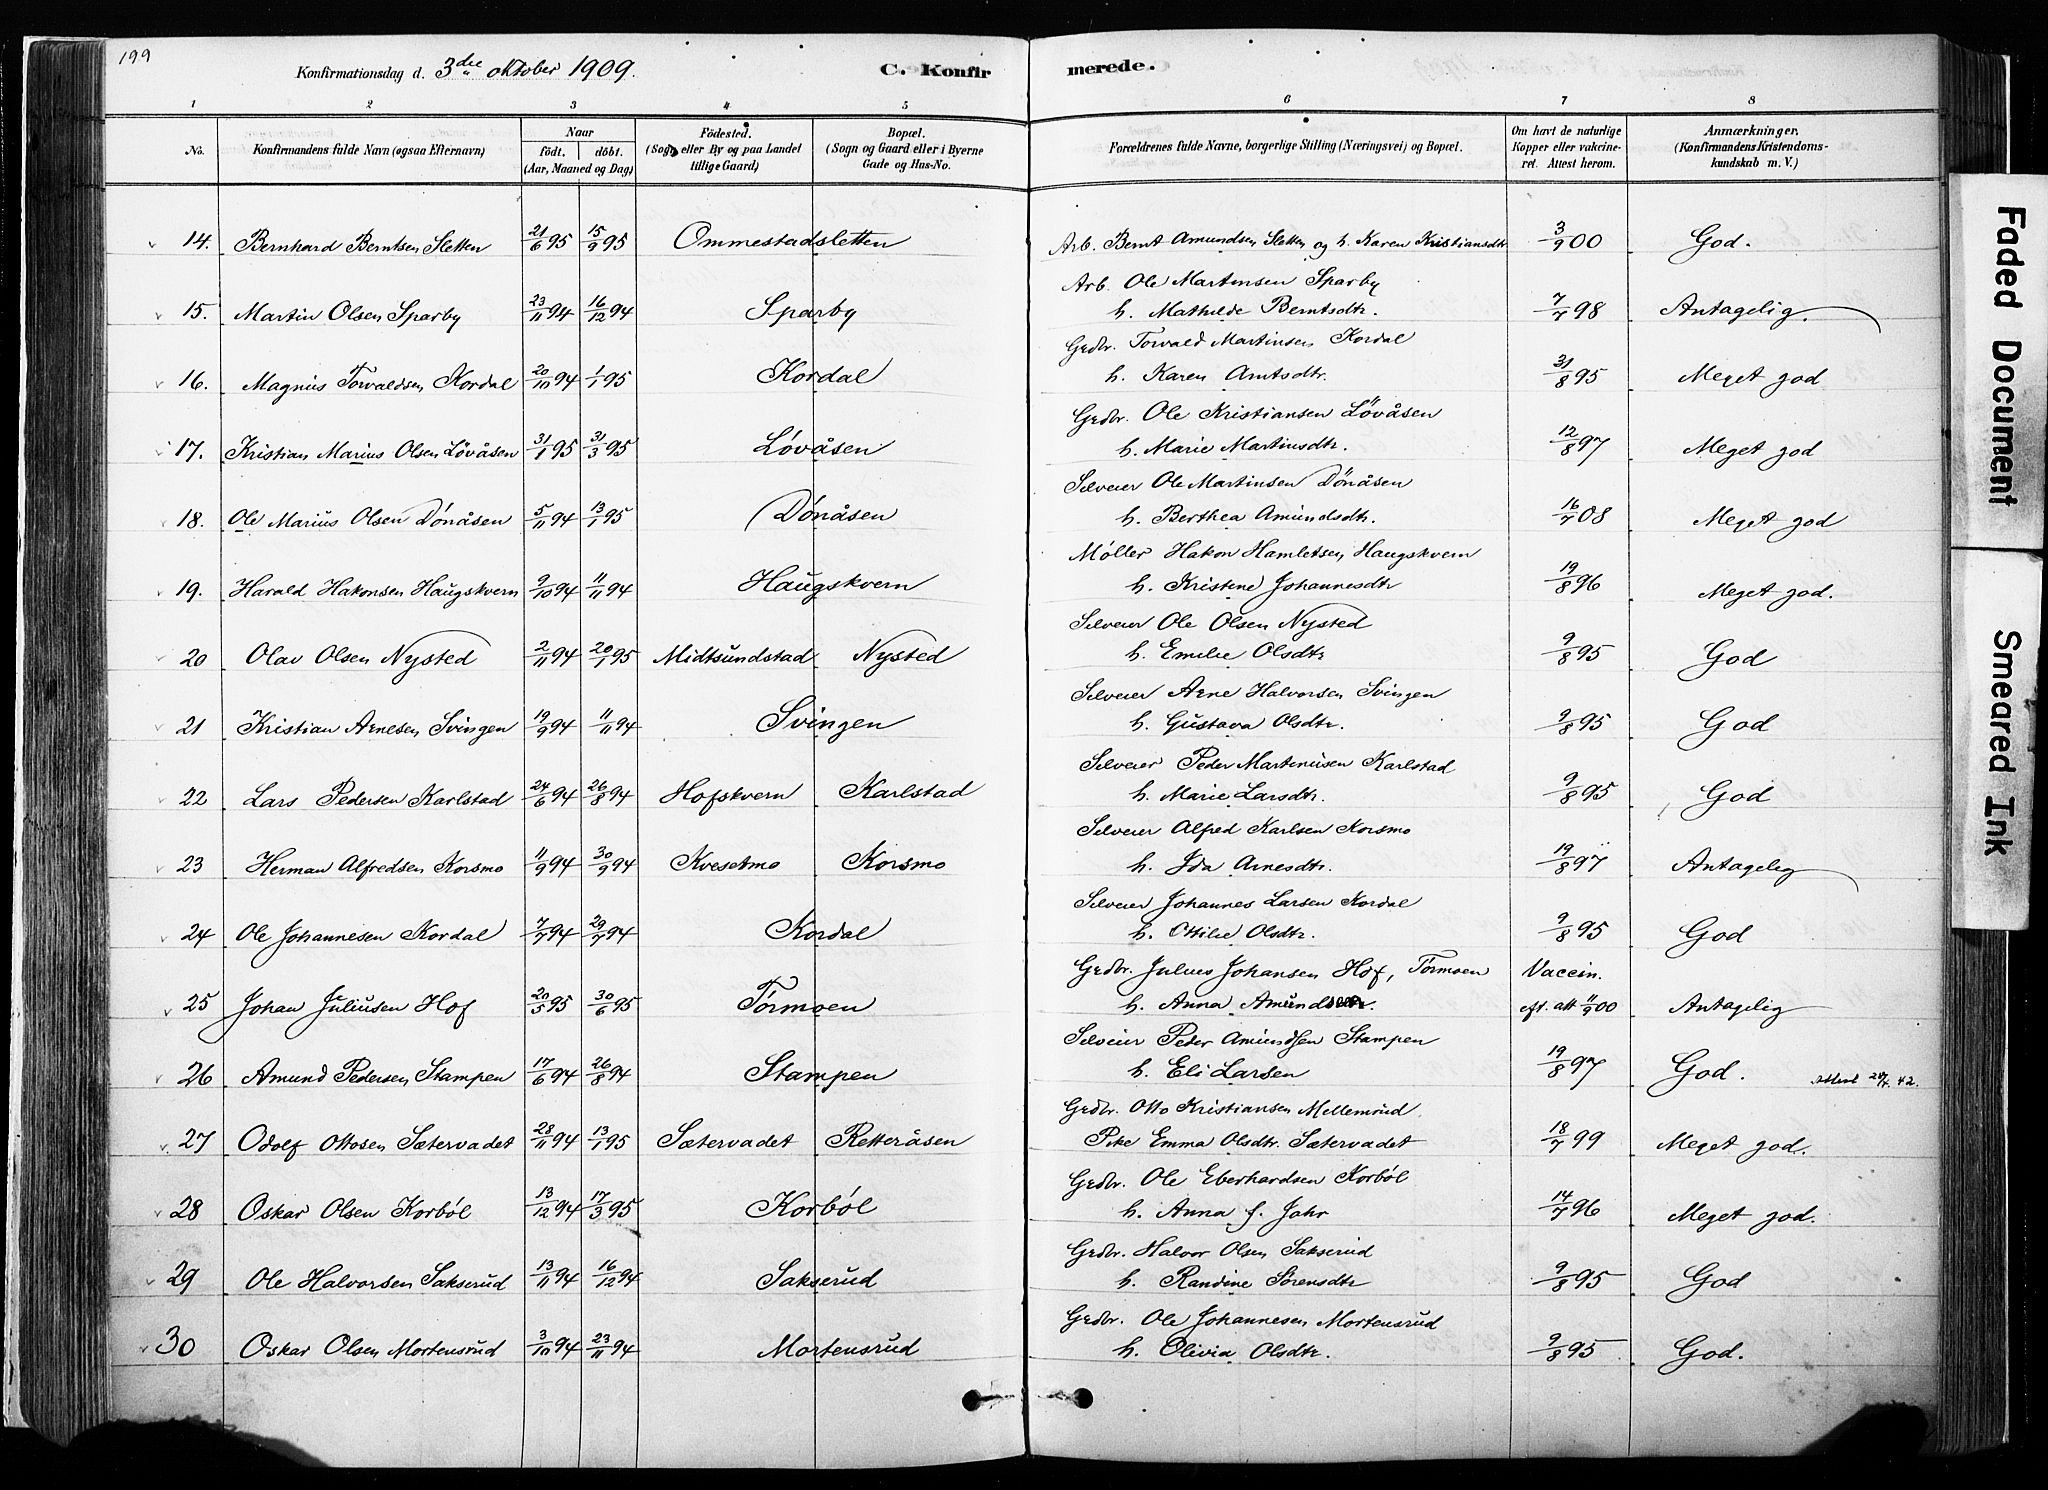 199
Konfirmationsdag d. 3die oktober 1909.
C. Konfir
merede.
1 2 3 4 5 6 7 8
No.
Konfirmandens fulde Navn (ogsaa Efternavn)
Naar
födt. döbt.
(Aar, Maaned og Dag)
Födested.
(Sogn eller By og paa Landet tillige Gaard)
Bopæl.
(Sogn og Gaard eller i Byerne Gade og Hus-No.
Forældrenes fulde Navne, borgerlige Stilling (Næringsvei) og Bopæl.
Om havt de naturlige Kopper eller vakcineret. Attest herom.
Anmærkninger.
(Konfirmandens Kristendomskundskab m. V.)
14. Bernhard Berntsen Sletten 21/6 95 15/9 95 Ommestadsletten Arb. Bernt Amundsen Sletten og h. Karen Kristiansdtr 3/9 00 God.
Arb. Ole Martinsen Sparby
15. Martin Olsen Sparby 23/11 94 16/12 94 Sparby h. Mathilde Berntsdtr. 7/7 98 Antagelig.
Grdbr. Torvald Martinsen Kordal
16. Magnus Torvaldsen Kordal 20/10 94 1/1 95 Kordal h. Karen Amtsdtr. 31/8 95 Meget god
Grdbr. Ole Kristiansen Lövåsen
17. Kristian Marius Olsen Lövåsen 31/1 95 31/3 95 Lövåsen h. Marie Martinsdtr. 12/8 97 Meget god
Selveier Ole Martinsen Dönåsen
18. Ole Marius Olsen Dönåsen 5/11 94 13/1 95 Dönåsen h. Berthea Amundsdtr. 16/7 08 Meget god
Møller Hakon Hamletsen Haugskvern
19. Harald Hakonsen Haugskvern 9/10 94 11/11 94 Haugskvern h. Kristene Johannesdtr 19/8 96 Meget god.
Selveier Ole Olsen Nysted
20 Olav Olsen Nysted 2/11 94 20/1 95 Midtsundstad Nysted h. Emilie Olsdtr 9/8 95 God
Selveier Arne Halvorsen Svingen
21 Kristian Arnesen Svingen 19/9 94 11/11 94 Svingen h. Gustava Olsdtr. 9/8 95 God
Selveier Peder Martinusen Karlstad
22 Lars Pedersen Karlstad 24/6 94 26/8 94 Hofskvern Karlstad h. Marie Larsdtr. 9/8 95 God
Selveier Alfred Karlsen Korsmo
23 Herman Alfredsen Korsmo 11/9 94 30/9 94 Kvesetmo Korsmo h. Ida Arnesdtr. 19/8 97 Antagelig
Selveier Johannes Larsen Kordal
24 Ole Johannesen Kordal 7/7 94 29/7 94 Kordal h. Ottilie Olsdtr. 9/8 95 God
Grdbr. Julius Johansen Hof, Törmoen Vaccin.
25 Johan Juliusen Hof 20/5 95 30/6 95 Törmoen h. Anna Amundsdtr. eft. att 11/9 00 Antagelig
Selveier Peder Amundsen Stampen
26 Amund Pedersen Stampen 17/6 94 26/8 94 Stampen h. Eli Larsen 19/8 97 God. Attest 42.
Grdbr. Otto Kristiansen Mellemrud
27 Odolf Ottosen Sætervadet 28/11 94 13/1 95 Sætervadet Retteråsen Pike Emma Olsdtr. Sætervadet 18/7 99 Meget god.
Grdbr. Ole Eberhardsen Korböl
28 Oskar Olsen Korböl 13/12 94 17/3 95 Korböl h. Anna f. Jahr 14/7 96 Meget god.
Grdbr. Halvor Olsen Sakserud
29 Ole Halvorsen Sakserud 13/11 94 16/12 94 Sakserud h. Randine Sörensdtr 9/8 95 God
Grdbr. Ole Johannesen Mortensrud
30 Oskar Olsen Mortensrud 3/10 94 23/11 94 Mortensrud h. Olivia Olsdtr. 9/8 95 God.
Faded Document
Smeared Ink